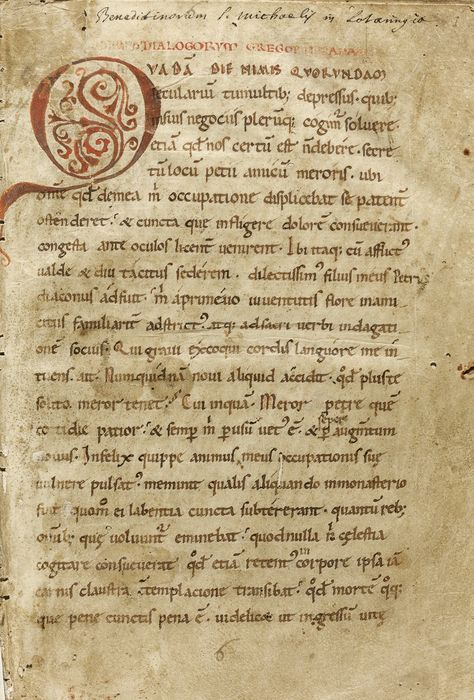 Benedictinorum S. Michaelis in Lotaringia
DIALOGORVM GREGORII PAPAE
QVADĀ DIE NIMIS QVORVNDAM
secularium tumultib; depressus · quib;
in suis negociis plerunq; cogimr̄ solvere
etiā qd̄ nos certum est ñ debere · secre
tū locū petii amicū meroris · ubi
omne qd̄ de mea m̄ occupatione displicebat se patent̄
ostenderet · & cuncta que infligere dolorē consueverant ·
congesta ante oculos licent̄ venirent · Ibi itaq; cū afflict'
valde & diu tacitus sederem · dilectissim' filius meus Petr'
diaconus adfuit · m̄ a primevo iuventutis flore in ami
citiis familiarit̄ adstrict' · atq; ad sacri verbi indagati
onē socius · Qui gravi excoqui cordis languore me in
tuens · ait · Nunquidnā novi aliquid accidit · qd̄ pl' te
solito meror tenet · Cui inquam · Meror petre quē
cotidie patior · & semp̄ m̄ p̄ usū vet' ē · & semper p̄ augmtum
novus · Infelix quippe animus meus occupationis suę
vulnere pulsat' meminit qualis aliquando in monasterio
fuit · quom̄ ei labentia cuncta subter erant · quantū reb;
omib; que volvunt̄ eminebat · quod nulla n̄ celestia
cogitare consueverat · qd̄ etiā retent' corpore ipsa iā
carnis claustra c̄templacione transibat · qd̄ mortē q̄q;
que pene cunctis pena ē · videlicet ut ingressum vite
6